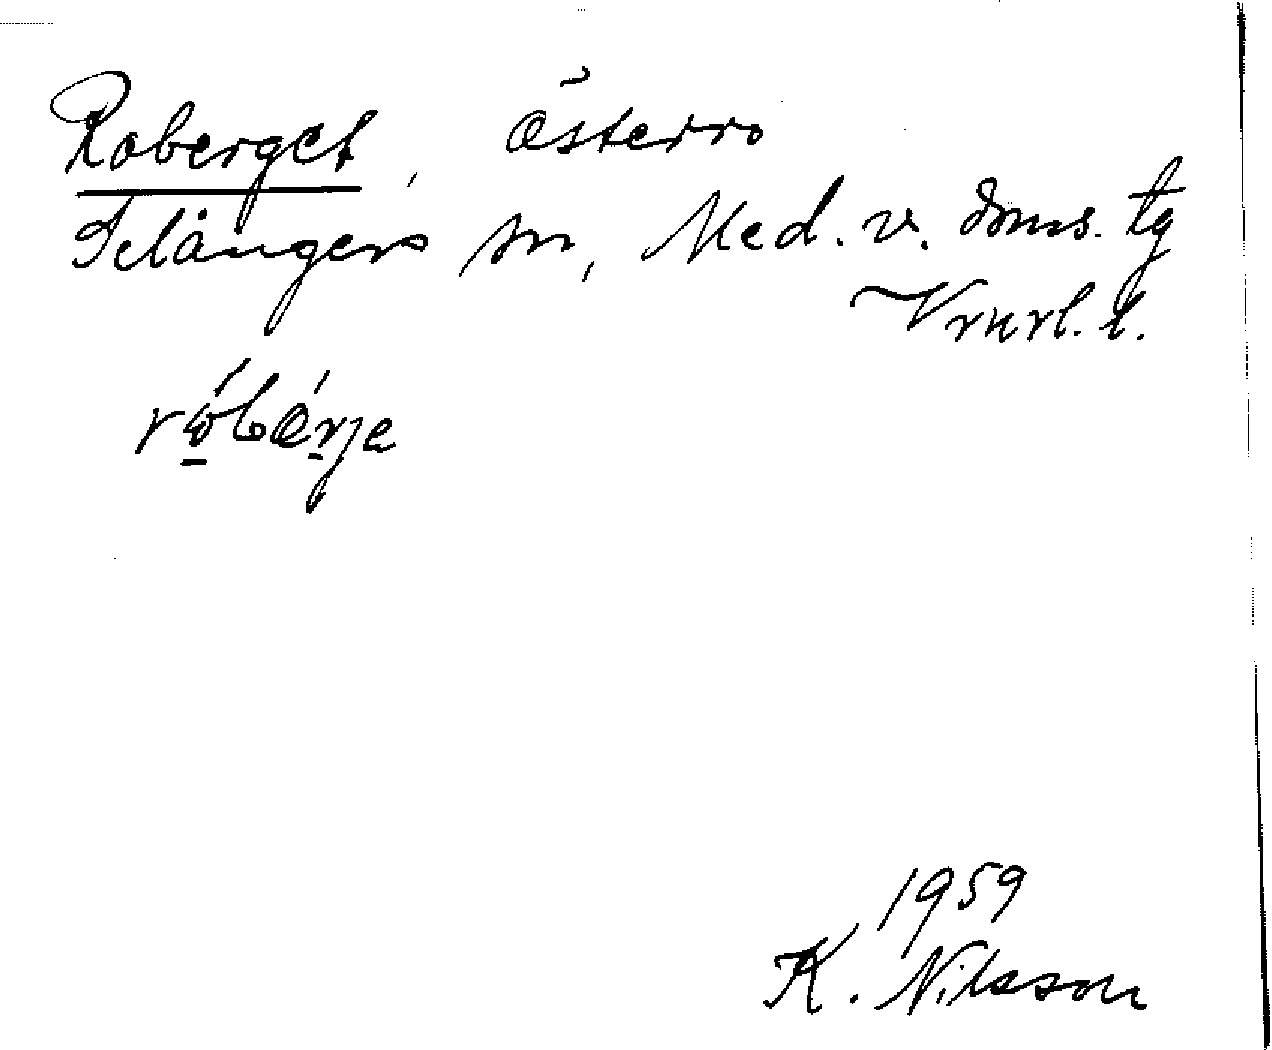 Roberget, Österro
Selångers sn, Med. v. doms. tg
Vrnrl. l.
1959
K. Nilsson